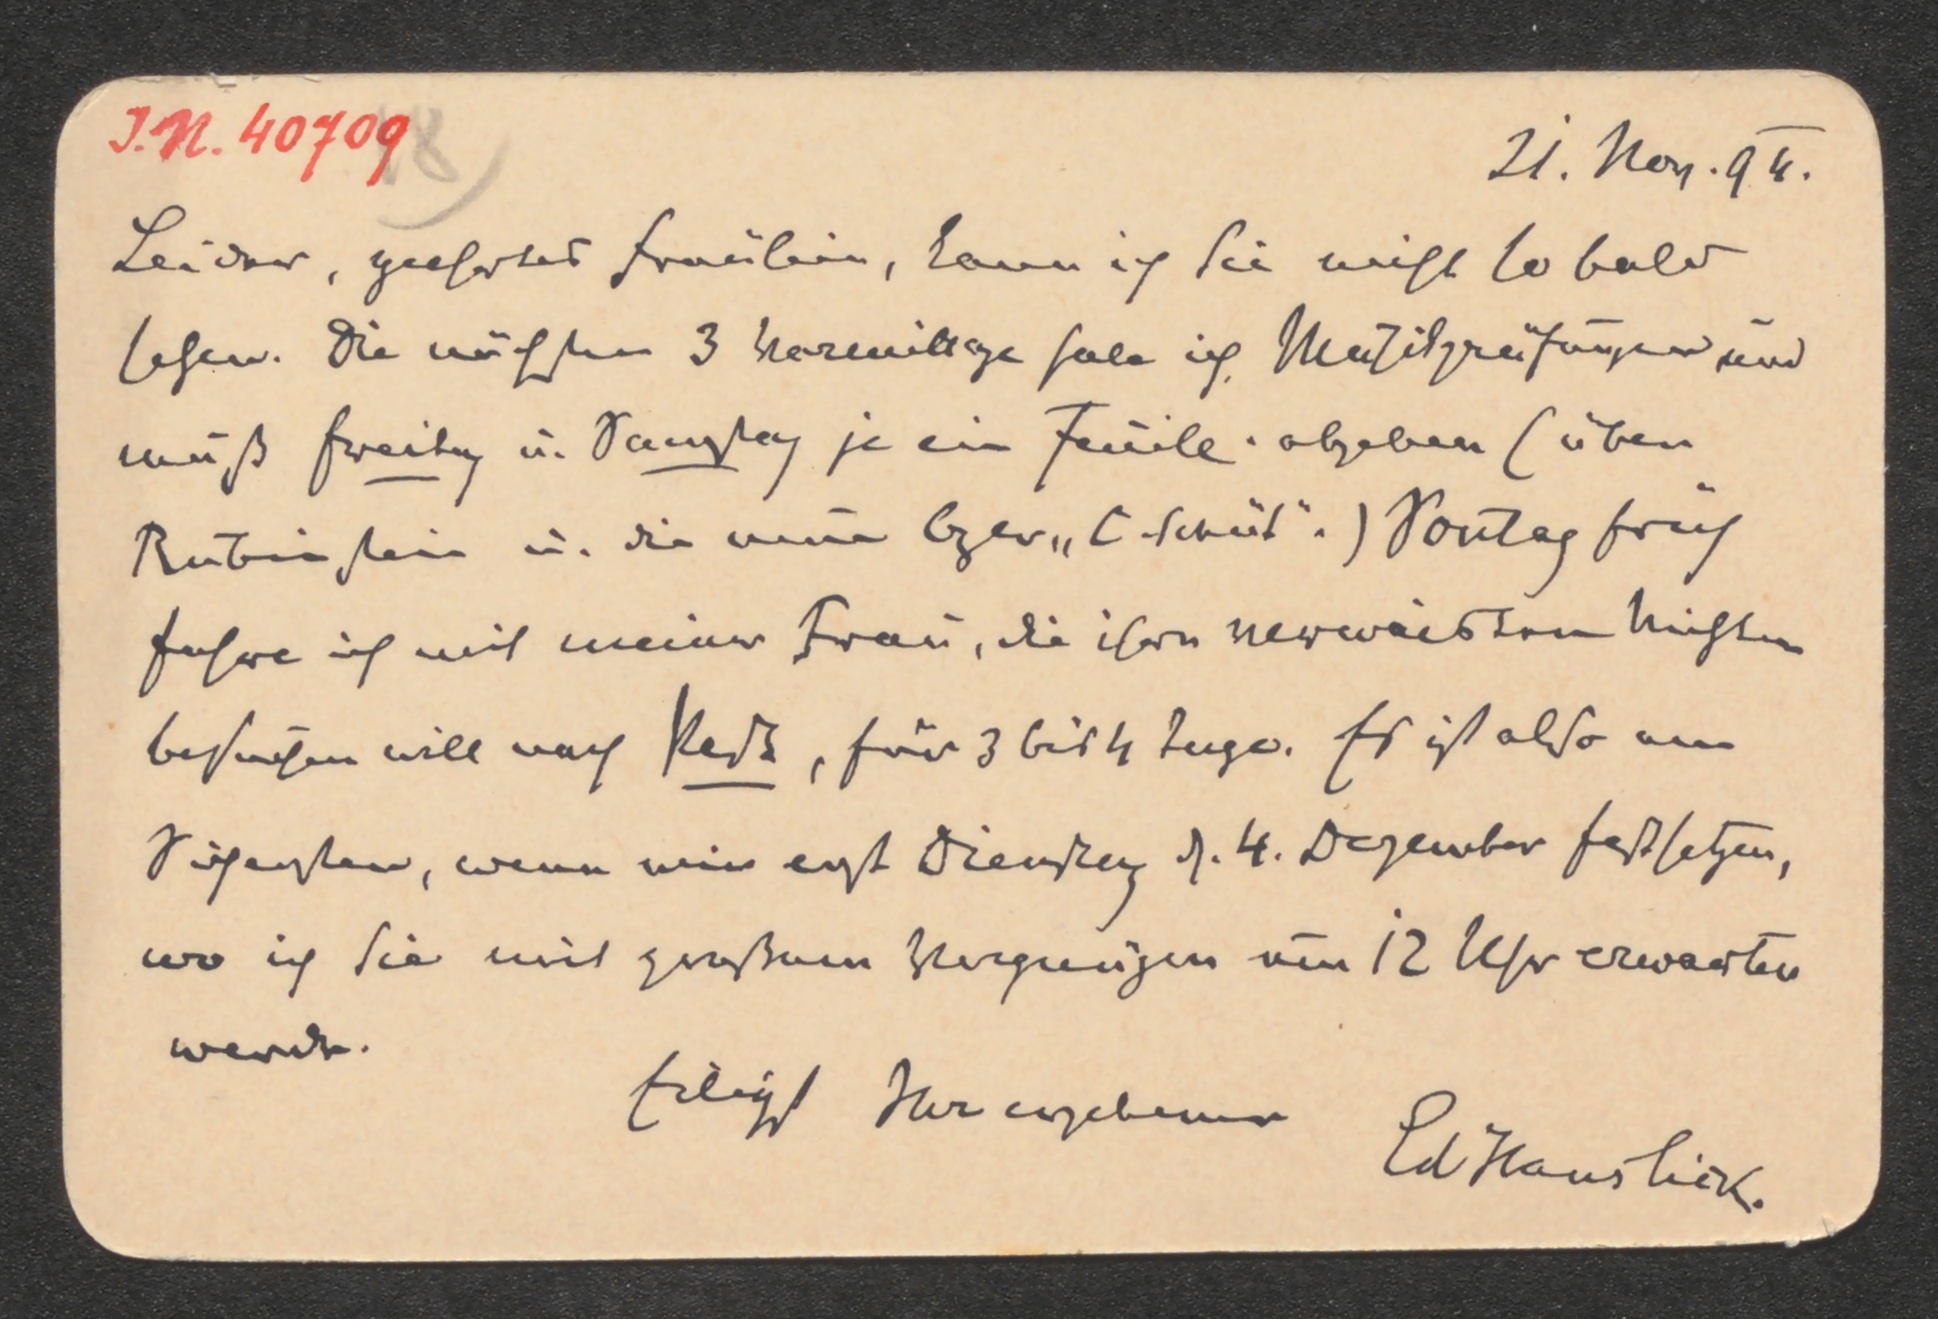 J.N. 40709
18)
21. Nov. 94.
Leider, geehrtes Fräulein, kann ich Sie nicht so bald
sehen. Die nächsten 3 Vormittage habe ich Musikprüfungen und
muß Freitag u. Samstag je ein Feuill. abgeben (über
Rubinstein u. die neue Oper „
.) Sontag früh
fahre ich mit meiner Frau, die ihre verwaisten Nichten
besuchen will nach Pest, für 3 bis 4 Tage. Es ist also am
Sichersten, wenn wir erst Dienstag d. 4. Dezember festsetzen,
wo ich Sie mit großem Vergnügen um 12 Uhr erwarten
werde.
Eiligst Ihr ergebener
Ed Hanslick.